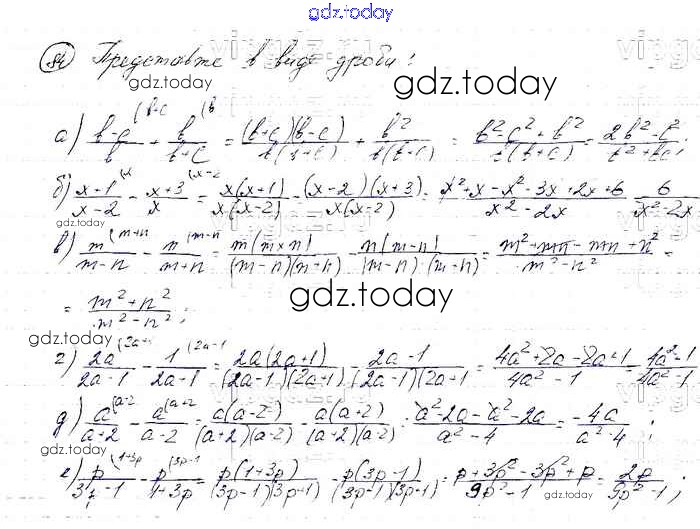 gdz.today
84) Представьте в виде дроби:
gdz.today
а) (b-c)/b + b/(b+c) = (b+c)(b-c)/b(b+c) + b²/b(b+c) = (b²-c²+b²)/b(b+c) = (2b²-c²)/(b²+bc);
б) (x+1)/(x-2) - (x+3)/x = x(x+1)/x(x-2) - (x-2)(x+3)/x(x-2) = (x²+x-x²-3x+2x+6)/(x²-2x) = 6/(x²-2x)
gdz.today
в) m/(m-n) - n/(m+n) = m(m+n)/(m-n)(m+n) - n(m-n)/(m-n)·(m+n) = (m²+mn-mn+n²)/(m²-n²) =
= (m²+n²)/(m²-n²);
gdz.today
gdz.today
г) 2a/(2a-1) - 1/(2a+1) = 2a(2a+1)/(2a-1)(2a+1) - (2a-1)/(2a-1)(2a+1) = (4a²+2a-2a+1)/(4a²-1) = (4a²+1)/(4a²-1)
д) a/(a+2) - a/(a-2) = a(a-2)/(a+2)(a-2) - a(a+2)/(a+2)(a-2) = (a²-2a-a²-2a)/(a²-4) = -4a/(a²-4);
gdz.today
е) p/(3p-1) - p/(1+3p) = p(1+3p)/(3p-1)(3p+1) - p(3p-1)/(3p-1)(3p+1) = (p+3p²-3p²+p)/(9p²-1) = 2p/(9p²-1);
gdz.today